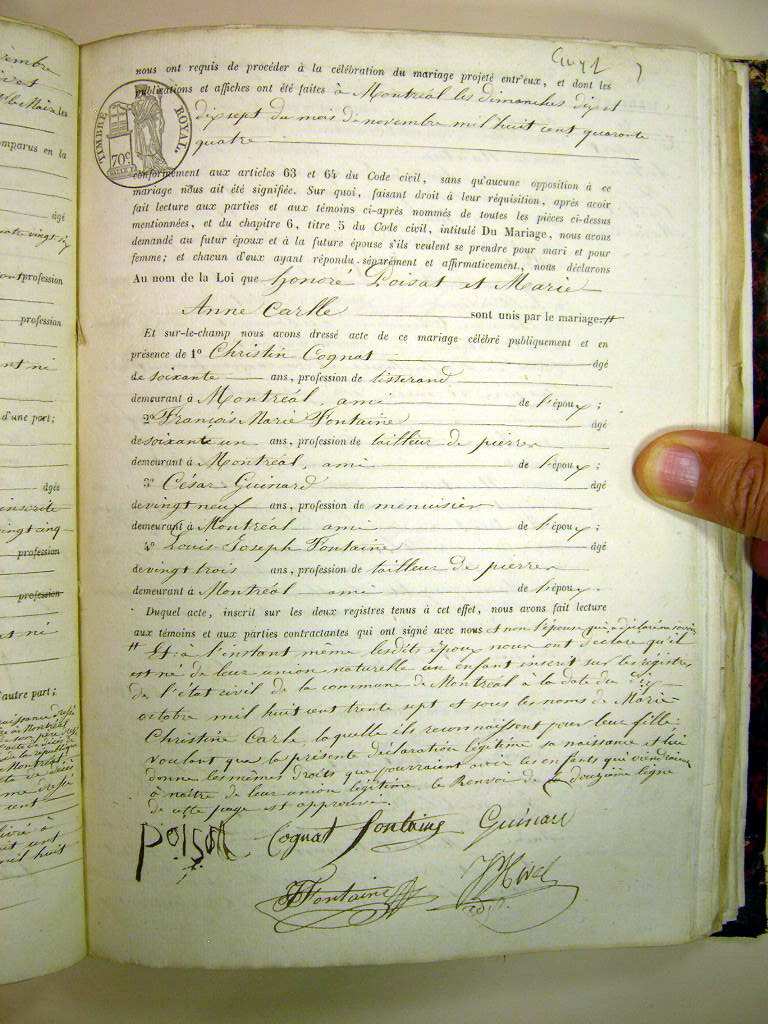 nous ont requis de procéder à la célébration du mariage projeté entr'eux, et dont les
publications et affiches ont été faites à Montréal les dimanches dix et
dix sept du mois de novembre mil huit cent quarante
quatre
TIMBRE ROYAL
70c
conformément aux articles 63 et 64 du Code civil, sans qu'aucune opposition à ce
mariage nous ait été signifiée. Sur quoi, faisant droit à leur réquisition, après avoir
fait lecture aux parties et aux témoins ci-après nommés de toutes les pièces ci-dessus
mentionnées, et du chapitre 6, titre 5 du Code civil, intitulé Du Mariage, nous avons
demandé au futur époux et à la future épouse s'ils veulent se prendre pour mari et pour
femme; et chacun d'eux ayant répondu séparément et affirmativement, nous déclarons
Au nom de la Loi que honoré Poisat et Marie
Anne Carlle sont unis par le mariage.#
Et sur-le-champ nous avons dressé acte de ce mariage célébré publiquement et en
présence de 1º Christin Cognat âgé
de soixante ans, profession de tisserand
demeurant à Montréal, ami de l'époux;
2º François Marie Fontaine âgé
de soixante un ans, profession de tailleur de pierres
demeurant à Montréal, ami de l'époux;
3º César Guinard âgé
de vingt neuf ans, profession de menuisier
demeurant à Montréal ami de l'époux;
4º Louis Joseph Fontaine âgé
de vingt trois ans, profession de tailleur de pierres
demeurant à Montréal ami de l'époux.
Duquel acte, inscrit sur les deux registres tenus à cet effet, nous avons fait lecture
aux témoins et aux parties contractantes qui ont signé avec nous et non l'épouse qui a déclaré ne savoir
# Et à l'instant même lesdits époux nous ont déclaré qu'il
est né de leur union naturelle un enfant inscrit sur les registres
de l'état civil de la commune de Montréal à la date du dix
octobre mil huit cent trente sept et sous les noms de Marie
Christine Carle, laquelle ils reconnaissent pour leur fille,
voulant que la présente déclaration légitime sa naissance et lui
donne les mêmes droits que pourraient avoir les enfants qui viendraient
à naître de leur union légitime. le Renvoi de la douzième ligne
de cette page est approuvé.
poisat Cognat fontaine Guinard
Fontaine